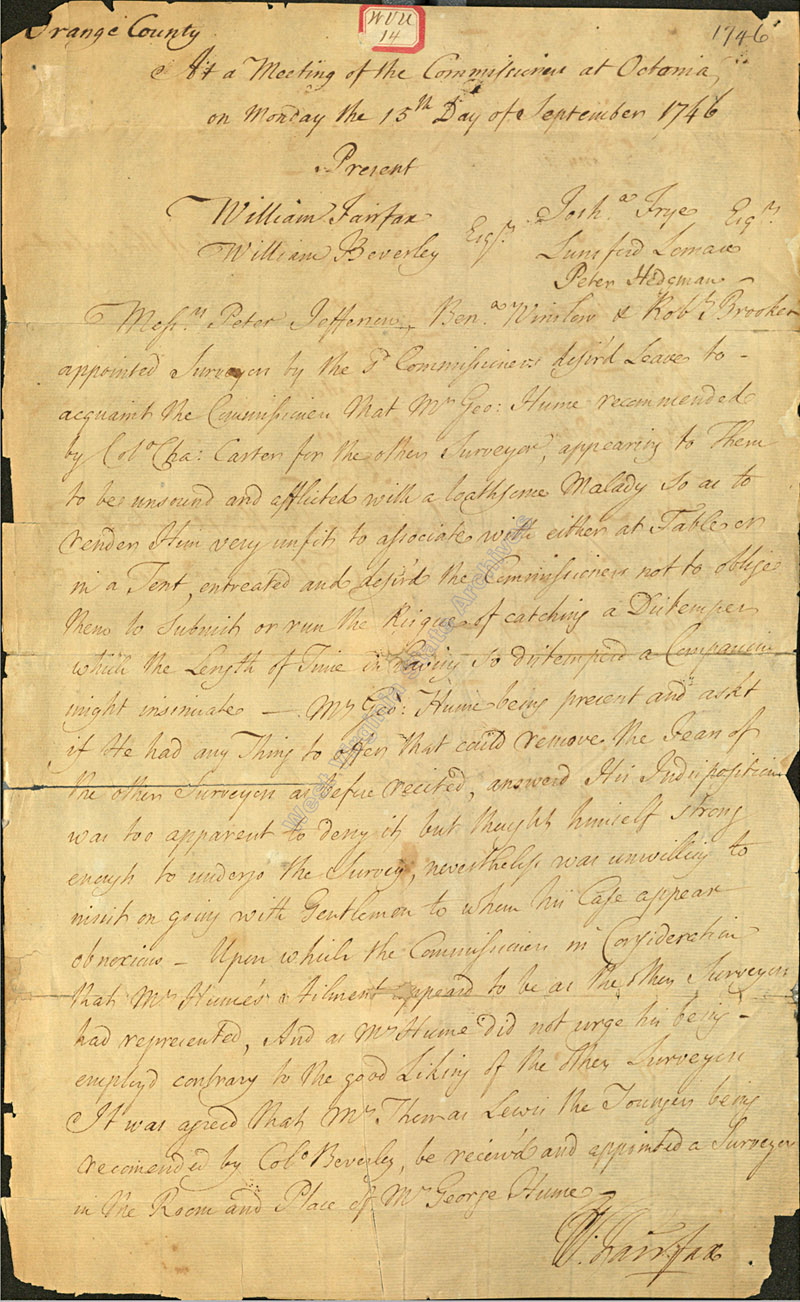 Orange County
WVU
14
1746
At a Meeting of the Commissioners at Octonia
on Monday the 15th Day of September 1746
Present
William Fairfax
William Beverley
Esqrs.
Josha. Frye
Lunsford Lomax
Peter Hedgman
Esqrs.
Messrs. Peter Jefferson, Ben.a Winslow & Robt. Brooke
appointed Surveyors by the sd. Commissioners desir'd Leave to -
acquaint the Commissioners that Mr Geo: Hume recommended
by Colo. Cha: Carter for the other Surveyor, appearing to Them
to be unsound and afflicted with a loathsome Malady so as to
render Him very unfit to associate with either at Table or
in a Tent, entreated and desir'd the Commissioners not to oblige
them to Submit or run the Risque of catching a Distemper
which the Length of Time in having so distemper'd a Companion
might insinuate — Mr Geo: Hume being present and askt
if He had any Thing to offer that could remove the Fears of
the other Surveyors as before recited, answer'd His Indisposition
was too apparent to deny it, but thought himself strong
enough to undergo the Survey, nevertheless was unwilling to
insist on going with Gentlemen to whom his Case appear
obnoxious - Upon which the Commissioners in Consideration
that Mr Hume's Ailment appeard to be as the other Surveyors
had represented, And as Mr Hume did not urge his being -
employ'd contrary to the good Liking of the other Surveyors
It was agreed that Mr. Thomas Lewis the Younger being
recomended by Colo. Beverley, be receiv'd and appointed a Surveyor
in the Room and Place of Mr George Hume -
W: Fairfax
West Virginia State Archives